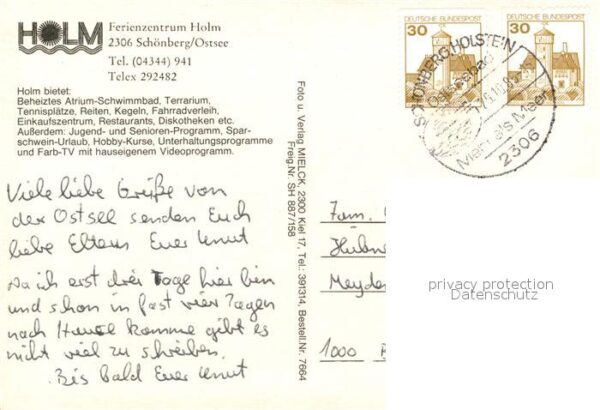 HOLM
Ferienzentrum Holm
2306 Schönberg/Ostsee
Tel. (04344) 941
Telex 292482
Holm bietet:
Beheiztes Atrium-Schwimmbad, Terrarium,
Tennisplätze, Reiten, Kegeln, Fahrradverleih,
Einkaufszentrum, Restaurants, Diskotheken etc.
Außerdem: Jugend- und Senioren-Programm, Spar-
schwein-Urlaub, Hobby-Kurse, Unterhaltungsprogramme
und Farb-TV mit hauseigenem Videoprogramm.
Viele liebe Grüße von
der Ostsee senden Euch
liebe Eltern Euer Knut
Da ich erst drei Tage hier bin
und schon in fast vier Tagen
nach Hause komme gibt es
nicht viel zu schreiben.
Bis bald Euer Knut
Foto u. Verlag MIELCK, 2300 Kiel 17, Tel.: 391314, Bestell.Nr. 7664
Freig.Nr. SH 887/158
DEUTSCHE BUNDESPOST
30
DEUTSCHE BUNDESPOST
30
SCHÖNBERG, HOLSTEIN
Ostseebad
Mehr als Meer
2306
Fam.
Hübne
Meyde
1000
privacy protection
Datenschutz